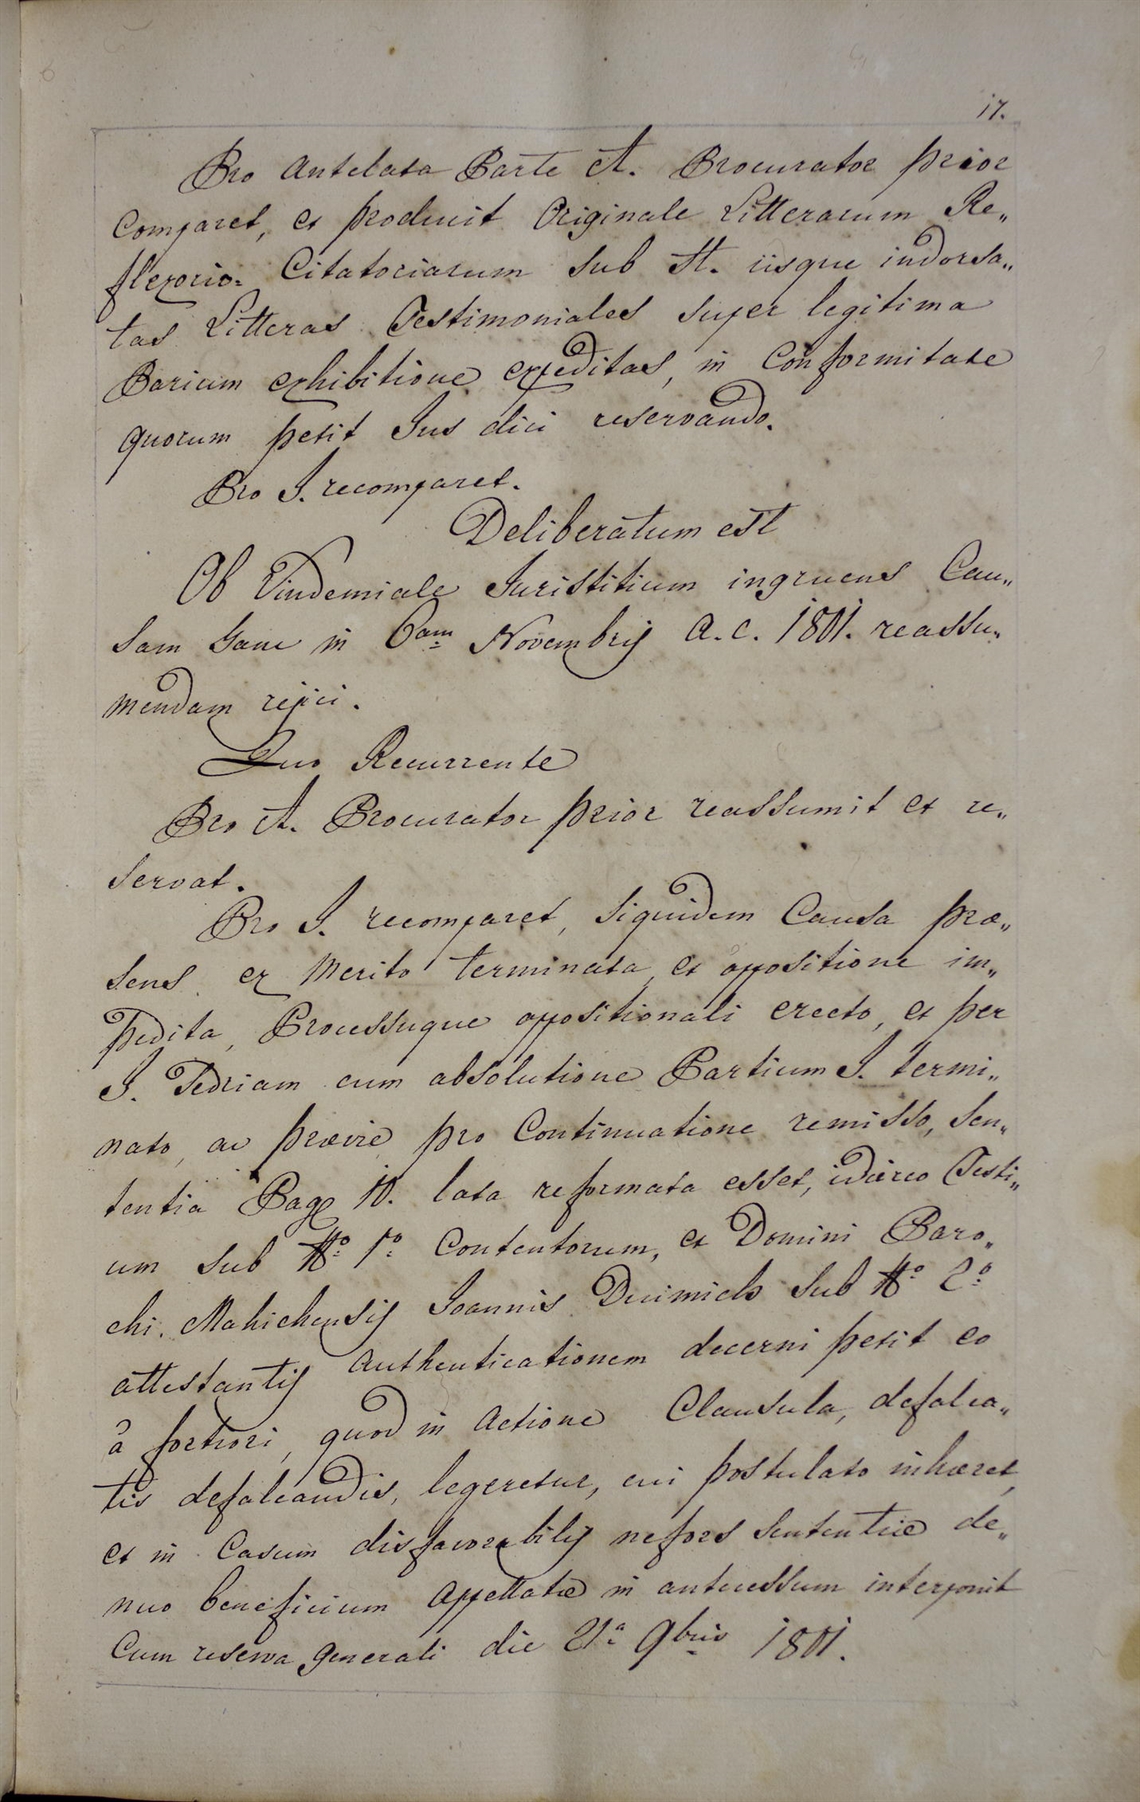 17.
Pro Antelata Parte A. Procurator prior
Comparet, et producit Originale Litterarum Re„
flexorio= Citatoriarum sub A. iisque indorsa„
tas Litteras Testimoniales super legitima
Parium exhibitione expeditas, in Conformitate
quorum petit Jus dici reservando.
Pro I. recomparet.
Deliberatum est
Ob Vindemiale Juristitium ingruens Cau„
sam hanc in 6am Novembris A. C. 1801. reassu„
mendam rejici.
Quo Recurrente
Pro A. Procurator prior reassumit et re„
servat.
Pro I. recomparet, siquidem Causa præ„
sens ex Merito terminata, et oppositione im„
pedita, Processuque oppositionali erecto, et per
I. Tedriam cum absolutione Partium I. termi„
nato, ac prævie pro Continuatione remisso, Sen„
tentia Pag 10. lata reformata esset, idcirco Testi„
um sub No 1o Contentorum, et Domini Paro„
chi Mahichensis Joannis Duimich sub No 2o
attestantis Authenticationem decerni petit eo
à fortiori, quod in Actione Clausula, defalca„
tis defalcandis, legeretur, cui postulato inhæret,
et in Casum disfavorabilis nefors Sententiæ de„
nuo beneficium Appellatæ in antecessum interponit
Cum reserva generali die 21a 9bris 1801.